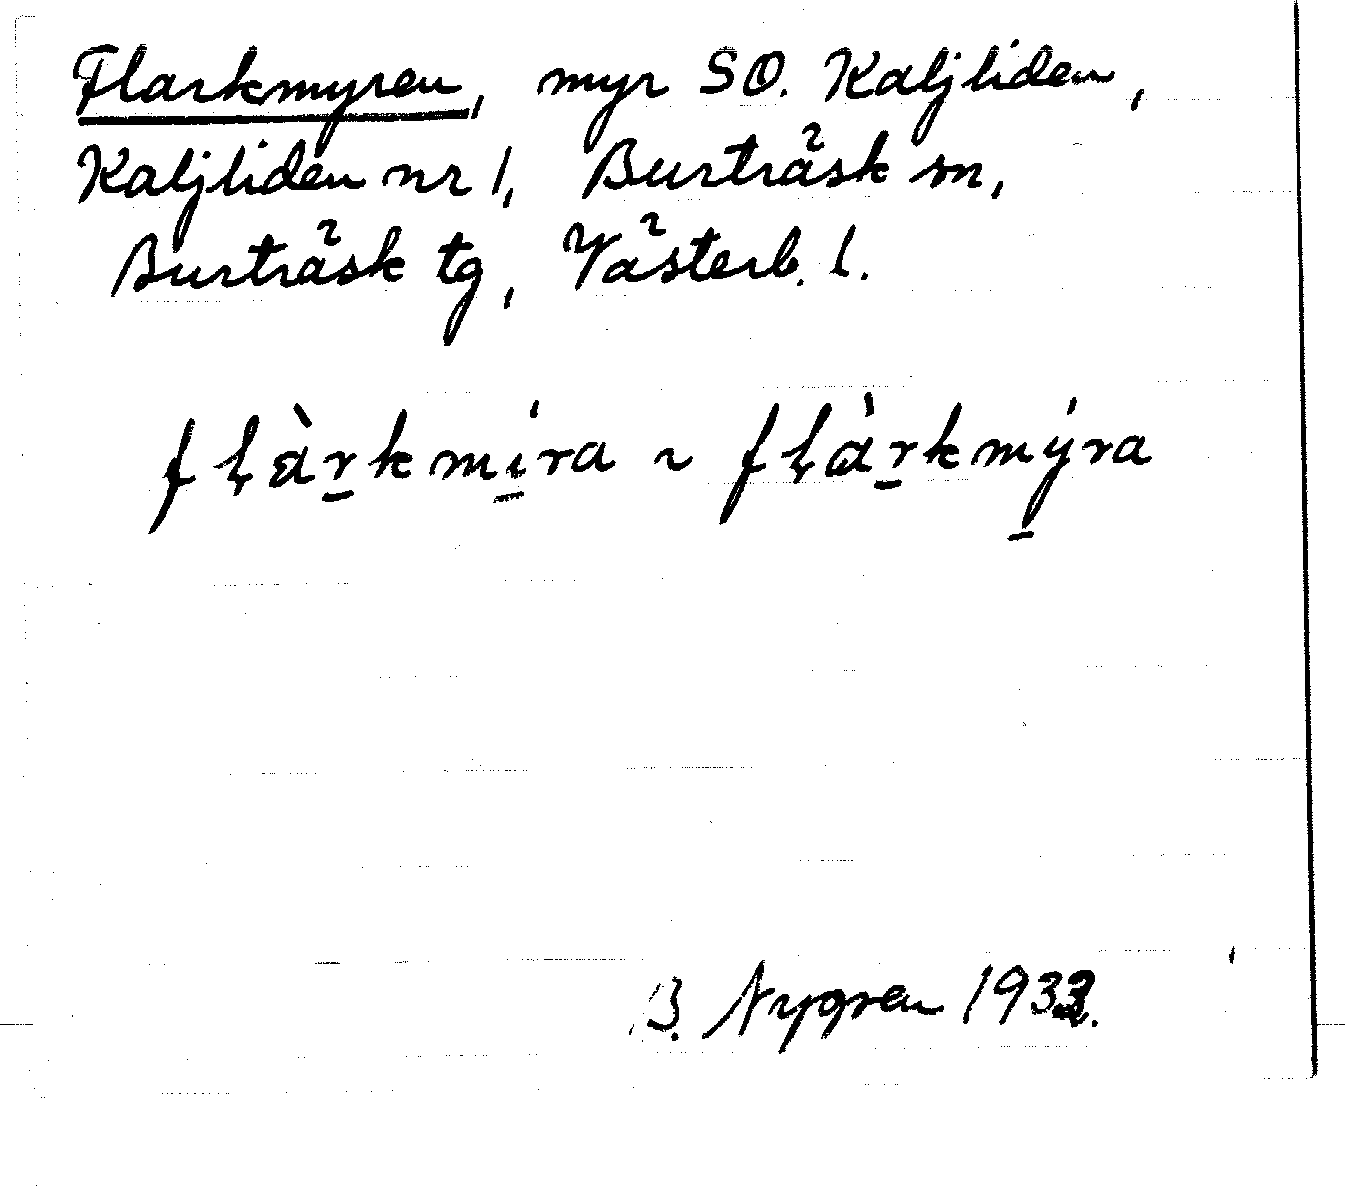 Flarkmyren, myr SO. Kaljliden,
Kaljliden nr 1, Burträsk sn,
Burträsk tg, Västerb. l.
fḷàr̲kmí̲ra ~ fḷàr̲kmý̲ra
B. Nygren 1933.